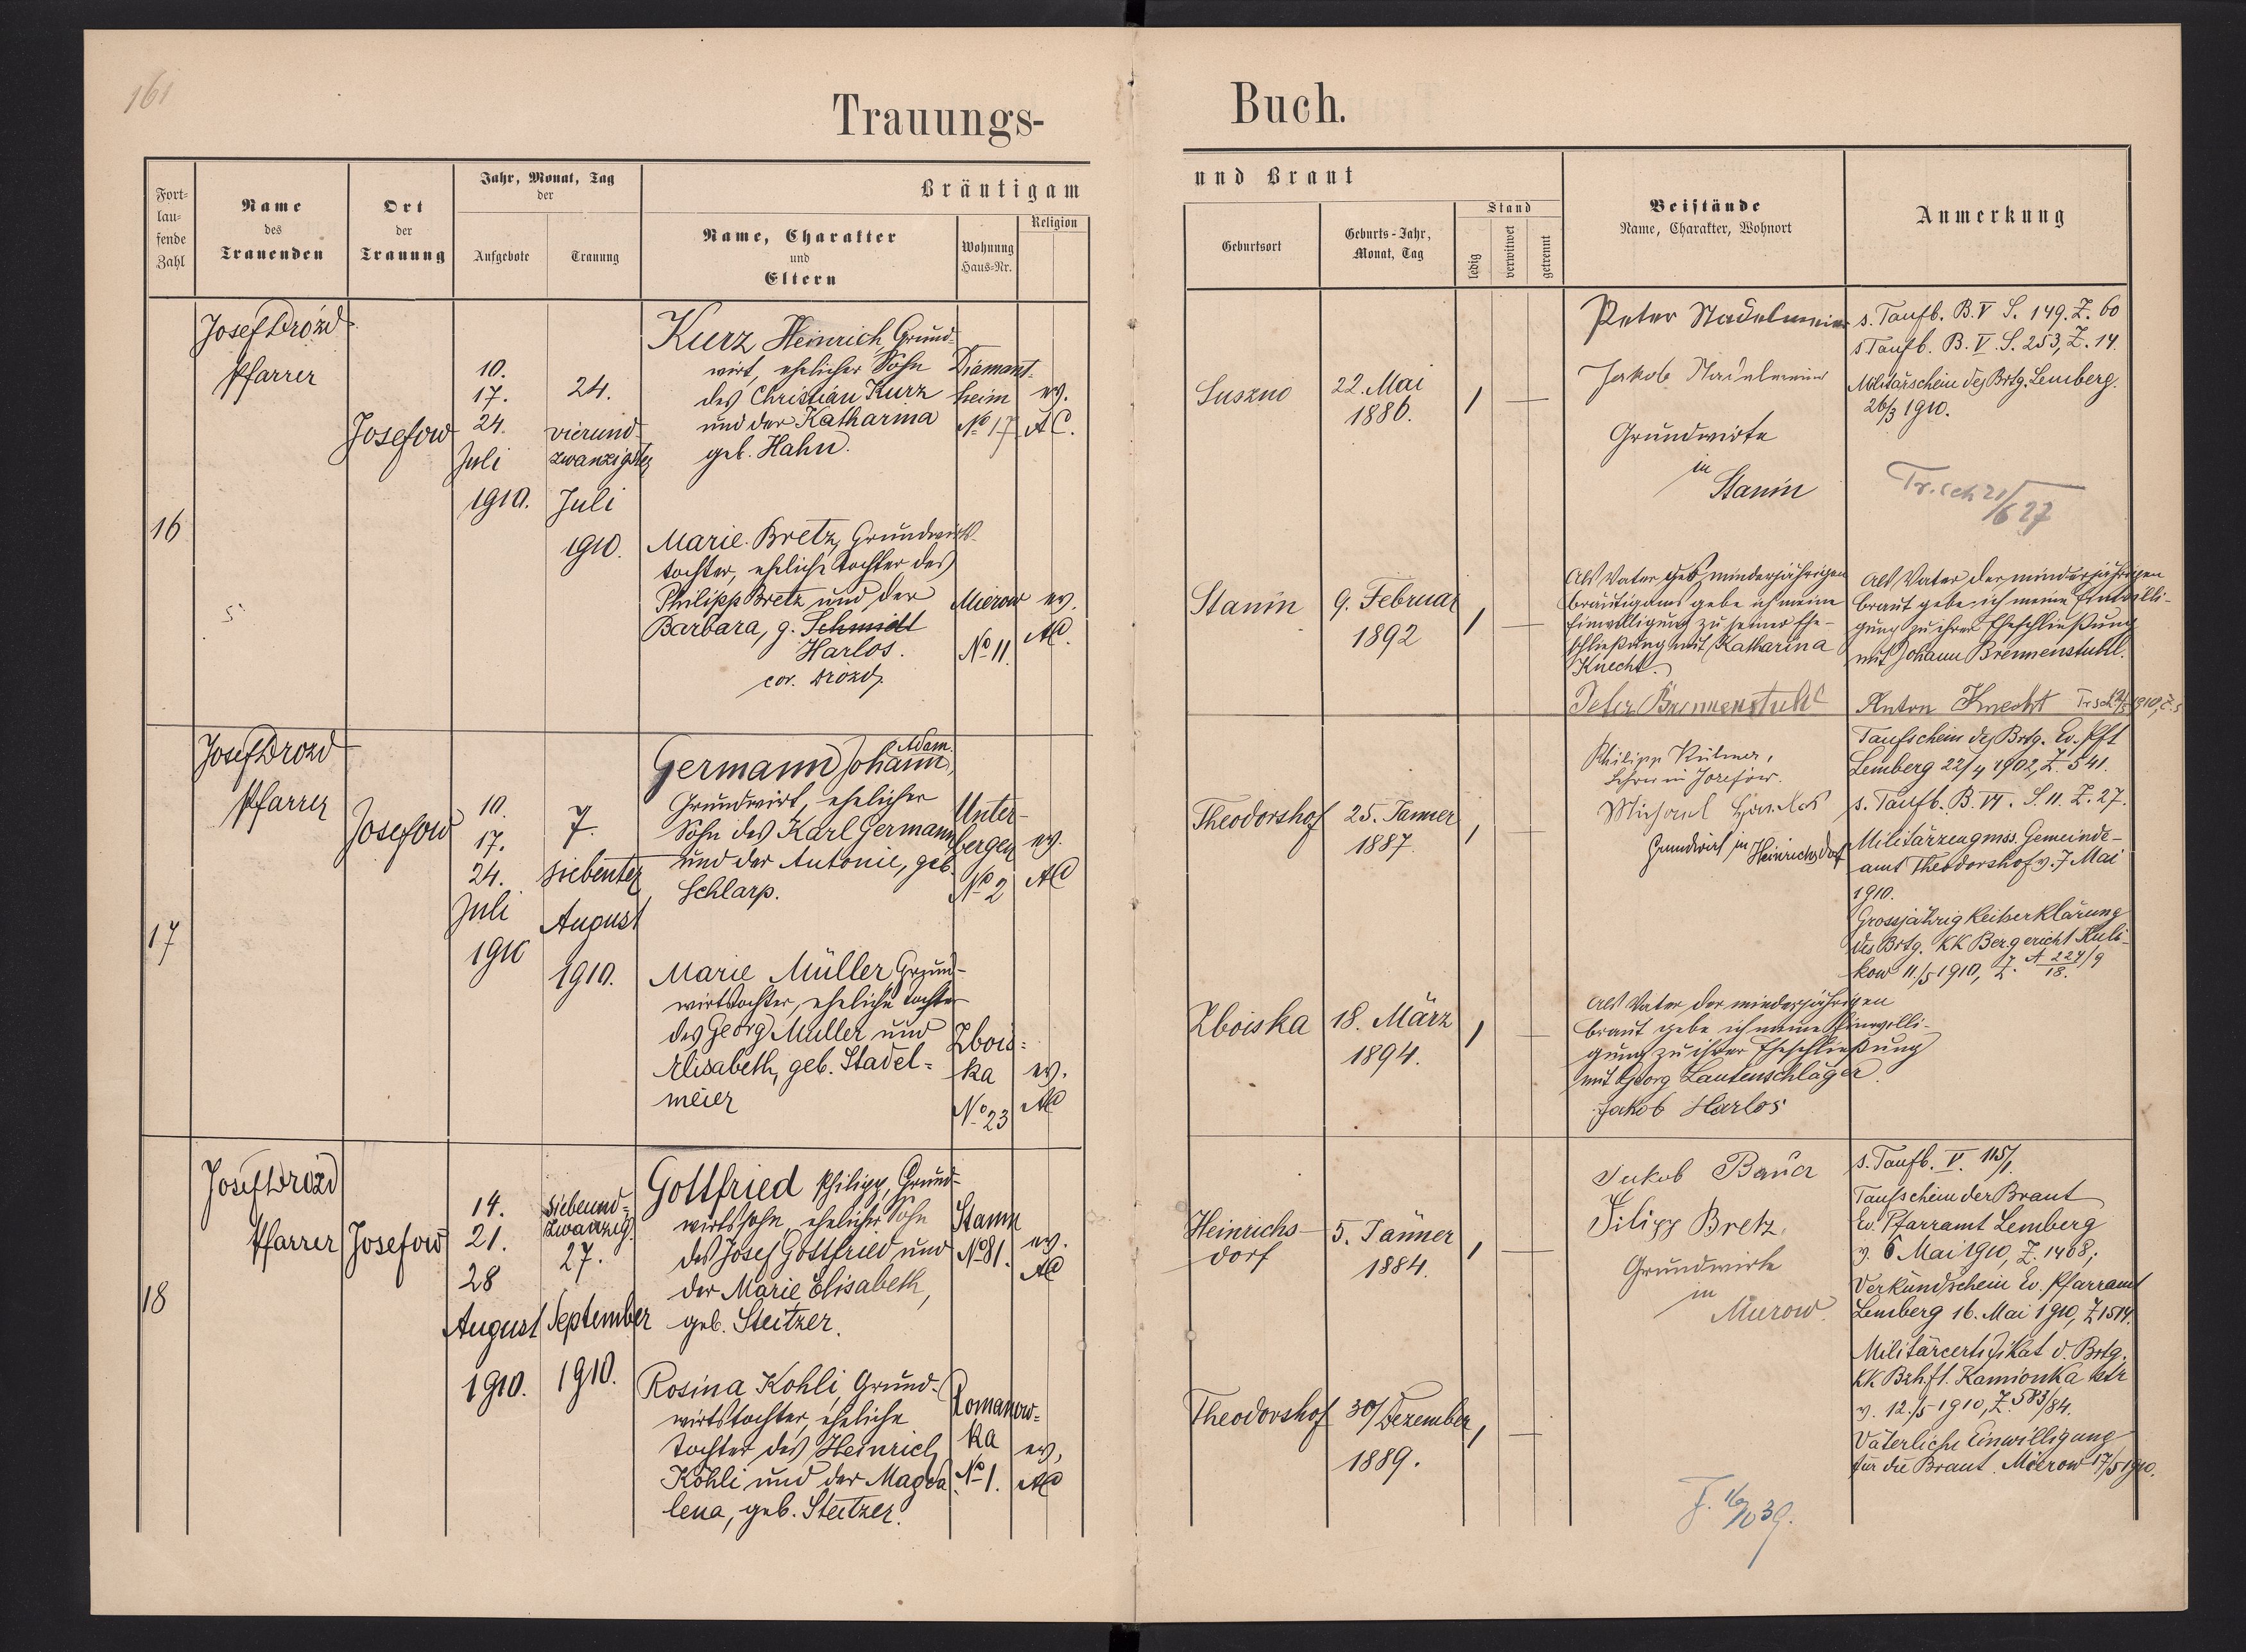 161
Trauungs-
Buch.
Fort-
lau-
fende
Zahl
Name
des
Trauenden
Ort
der
Trauung
Jahr, Monat, Tag
der
Aufgebote
Trauung
Bräutigam
Name, Charakter
und
Eltern
Wohnung
Haus-Nr.
Religion
und Braut
Geburtsort
Geburts-Jahr,
Monat, Tag
Stand
ledig
verwitwet
getrennt
Beistände
Name, Charakter, Wohnort
Anmerkung
16
Josef Drozd
Pfarrer
Josefow
10.
17.
24.
Juli
1910.
24.
vierund-
zwanzigster
Juli
1910.
Kurz Heinrich, Grund-
wirt, ehelicher Sohn
des Christian Kurz
und der Katharina
geb. Hahn.
Diamant-
heim
No 17
ev.
A.C.
Marie Bretz, Grundwirts-
tochter, eheliche Tochter des
Philipp Bretz und der
Barbara, g. Schmidt
Harlos.
cor. Drozd
Mierow
No 11.
ev.
AC.
Suszno
22. Mai
1886.
Stanin
9. Februar
1892
Peter Stadelmeier
Jakob Stadelmeier
Grundwirte
in
Stanin
Als Vater des minderjährigen
Bräutigams gebe ich meine
Einwilligung zu seiner Ehe-
schließung mit Katharina
Knecht.
Peter Brennenstuhl
s. Taufb. B. V S. 149. Z. 60
s Taufb. B. V. S. 253, Z. 14.
Militärschein des Brtg. Lemberg.
26/3 1910.
Tr. sch 21/6 27
Als Vater der minderjährigen
Braut gebe ich meine Einwilli-
gung zu ihrer Eheschließung
mit Johann Brennenstuhl.
Anton Knecht
17
Josef Drozd
Pfarrer
Josefow
10.
17.
24.
Juli
1910
7.
siebenter
August
1910.
Adam
Germann Johann,
Grundwirt, ehelicher
Sohn des Karl Germann
und der Antonie, geb.
Schlarp.
Unter-
bergen
No 2
ev.
AC
Marie Müller Grund-
wirtstochter, eheliche Tochter
des Georg Müller und
Elisabeth, geb. Stadel-
meier
Zbois-
ka
No 23
ev.
AC
Theodorshof
25. Jänner
1887.
Zboiska
18. März
1894.
Philipp Külmer,
Lehrer in Josefow.
Michael Harlos
Grundwirt in Heinrichsdorf
Als Vater der minderjährigen
Braut gebe ich meine Einwilli-
gung zu ihrer Eheschließung
mit Georg Lautenschläger.
Jakob Harlos
Taufschein des Brtg. Ev. Pft
Lemberg 22/4 1902, Z. 541.
s. Taufb. B. VI. S. 11. Z. 27.
Militärzeugniss Gemeinde-
amt Theodorshof v. 7 Mai
1910.
Grossjährigkeitserklärung
des Brtg. KK Bergericht Kuli-
kow 11./5 1910, Z. A 224/9
18.
18
Josef Drozd
Pfarrer
Josefow
14.
21.
28
August
1910.
siebenund-
zwanzig.
27.
September
1910.
Gottfried Philipp, Grund-
wirtssohn, ehelicher Sohn
des Josef Gottfried und
der Marie Elisabeth,
geb. Steitzer.
Stanin
No 81.
ev.
AC
Rosina Kohli, Grund-
wirtstochter, eheliche
Tochter des Heinrich
Köhli und der Magda
lena, geb. Steitzer.
Romanow-
ka
No 1.
ev,
AC
Heinrichs-
dorf
5. Jänner
1884.
Theodorshof
30/Dezember
1889.
Jakob Bauer
Filipp Bretz,
Grundwirte
in
Mierow.
s. Taufb. V. 115/1.
Taufschein der Braut
Ev. Pfarramt Lemberg
v. 6 Mai 1910, Z. 1468;
Verkündschein Ev. Pfarramt
Lemberg 16. Mai 1910, Z 1514.
Militärcertifikat d. Brtg.
KK Bzh.ft. Kamionka str
v. 12./5 1910, Z. 583/84.
Väterliche Einwilligung
für die Braut. Mierow 17/5 1910.